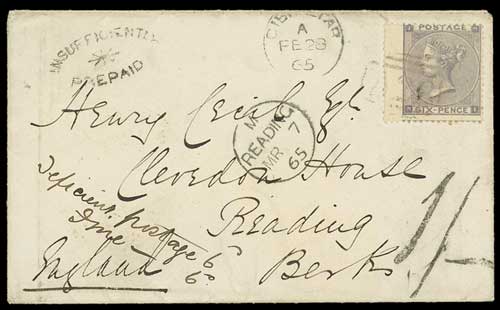 INSUFFICIENTLY
PREPAID
GIBRALTAR
A
FE 28
65
POSTAGE
SIX-PENCE
Henry Cecil Esq.
READING
MR 7
65
Clevedon House
Reading
Berks
England
Deficient postage 6d
Fine 6d
1/-